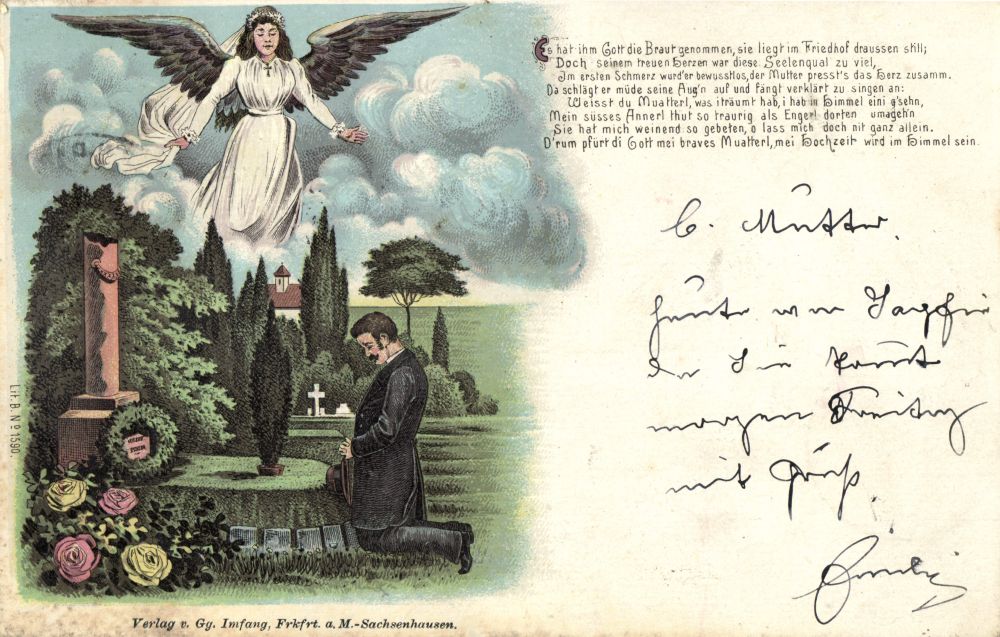 Es hat ihm Gott die Braut genommen, sie liegt im Friedhof draussen still;
Doch seinem treuen Herzen war diese Seelenqual zu viel,
Im ersten Schmerz wurd'er bewusstlos, der Mutter presst's das Herz zusamm.
Da schlägt er müde seine Aug'n auf und fängt verklärt zu singen an:
Weisst du Muatterl, was i träumt hab, i hab in Himmel eini g'sehn,
Mein süsses Annerl thut so traurig als Engerl dorten umageh'n
Sie hat mich weinend so gebeten, o lass mich doch nit ganz allein.
D'rum pfürt di Gott mei braves Muatterl, mei Hochzeit wird im Himmel sein.
Mutter.
heute
morgen Freitag
mit Gruß
Lit. B. No 1590.
Verlag v. Gg. Imfang, Frkfrt. a. M.-Sachsenhausen.